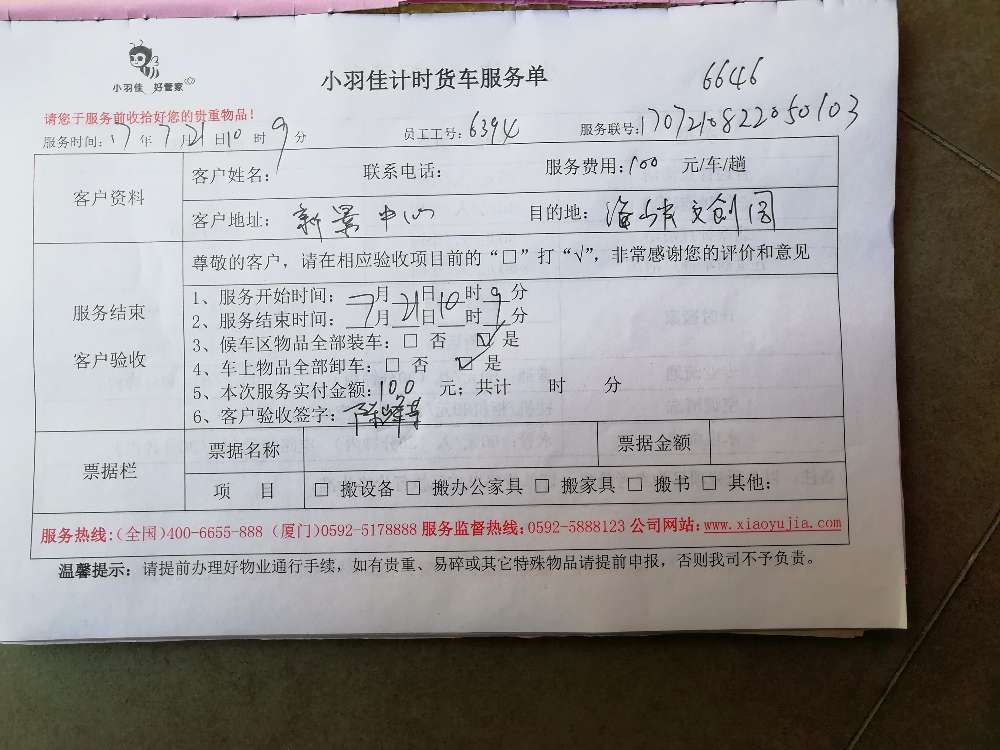 小羽佳 好管家
小羽佳计时货车服务单
6646
请您于服务前收拾好您的贵重物品！
服务时间：17年7月21日10时9分 员工工号：6394 服务联号：170721082205 0103
客户资料
客户姓名： 联系电话： 服务费用：100 元/车/趟
客户地址：新景中心 目的地：海峡文创园
尊敬的客户，请在相应验收项目前的“□”打“√”，非常感谢您的评价和意见
服务结束
客户验收
1、服务开始时间：7月21日10时9分
2、服务结束时间：__月__日__时__分
3、候车区物品全部装车：□ 否 ☑ 是
4、车上物品全部卸车：□ 否 ☑ 是
5、本次服务实付金额：100 元；共计 时 分
6、客户验收签字：
票据栏
票据名称 票据金额
项 目 □ 搬设备 □ 搬办公家具 □ 搬家具 □ 搬书 □ 其他：
服务热线:(全国)400-6655-888 (厦门)0592-5178888 服务监督热线:0592-5888123 公司网站:www.xiaoyujia.com
温馨提示：请提前办理好物业通行手续，如有贵重、易碎或其它特殊物品请提前申报，否则我司不予负责。